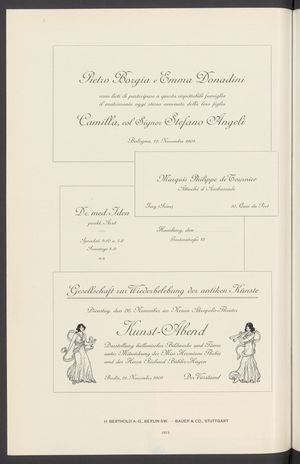 Pietro Borgia e Emma Donadini
sono lieti di partecipare a questa rispettabile famiglia
il matrimonio oggi stesso avvenuto della loro figlia
Camilla, col Signor Stefano Angeli
Bologna, 12. Novembre 1901.
Marquis Philippe de Tousnier
Attaché d'Ambassade
Ivry (Seine)
10, Quai du Port
Dr. med. Iden
prakt. Arzt
Sprechst. 8-10 u. 5-8
Sonntags 8-9
Hamburg, den
Gesellschaft zur Wiederbelebung der antiken Künste
Dienstag, den 26. November im Neuen Akropolis-Theater
Kunst-Abend
Darstellung hellenischer Bildwerke und Tänze
unter Mitwirkung des Miss Hermine
und des Herrn Richard
Berlin, 12. November 1901
Der Vorstand
H. BERTHOLD A.-G., BERLIN SW. — BAUER & CO., STUTTGART